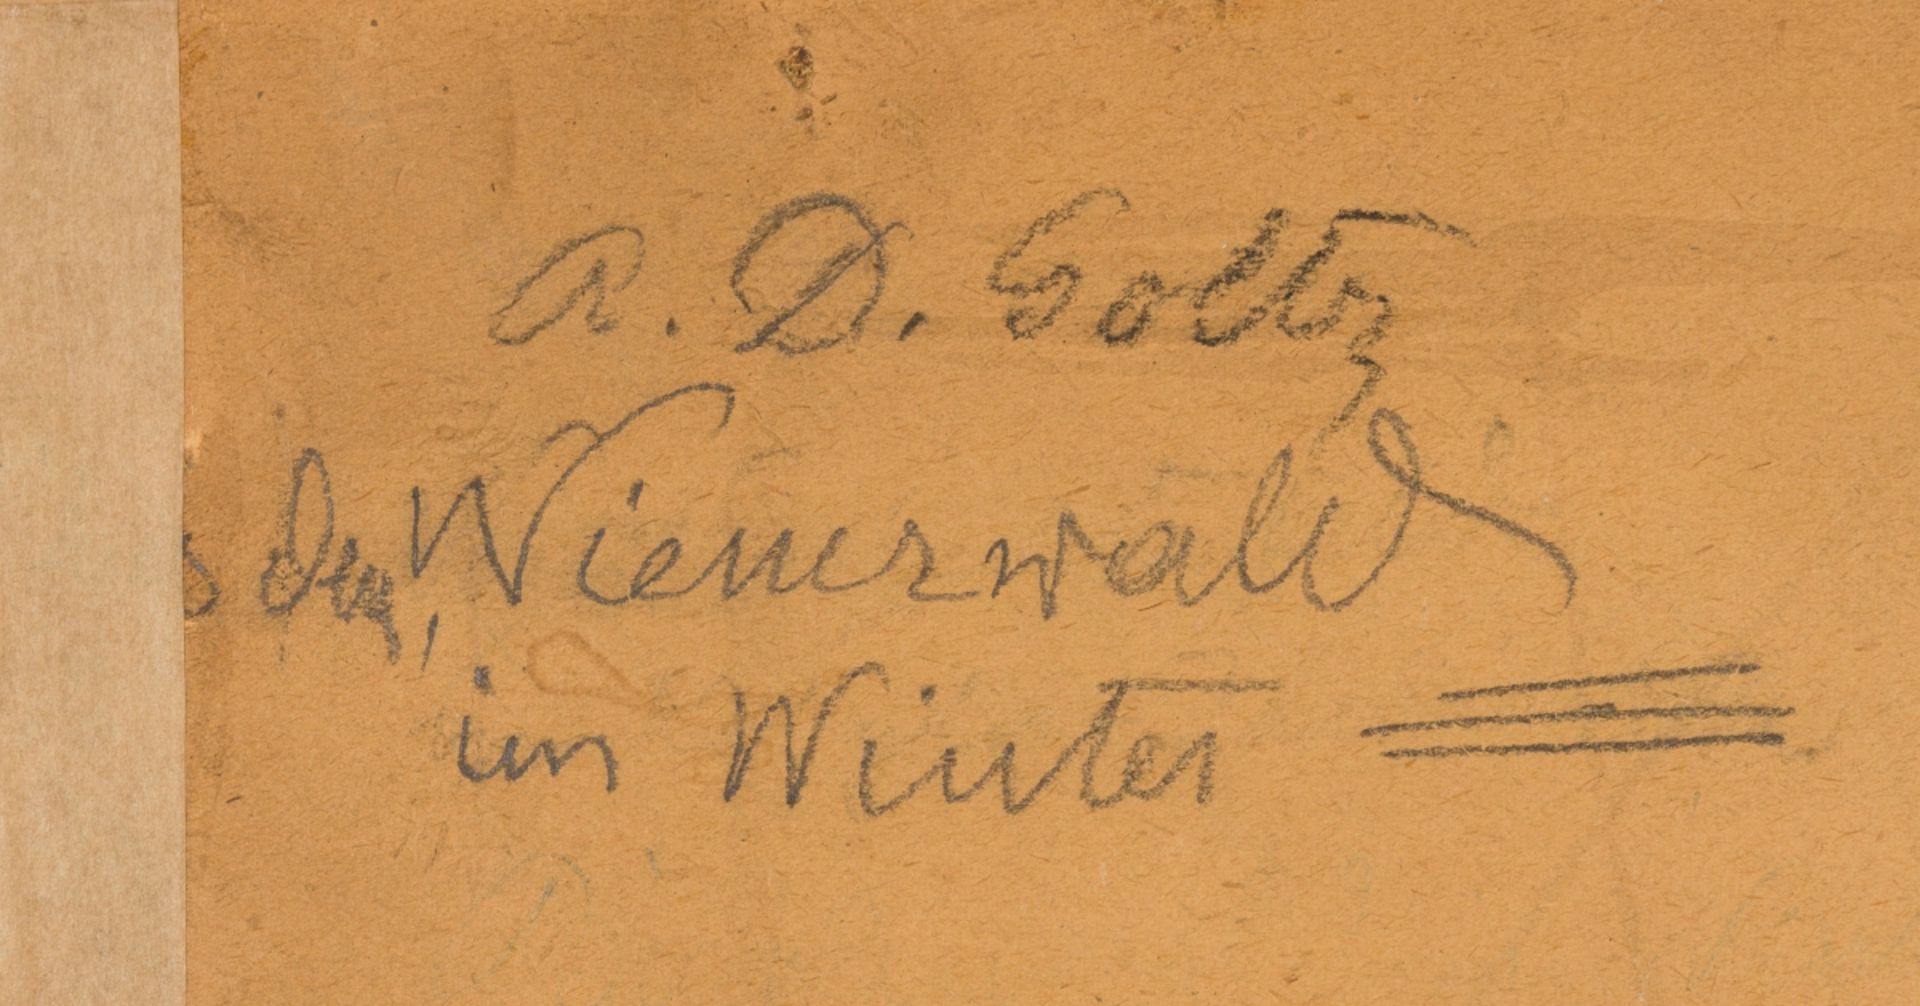 A. D. Goltz
Wienerwald
im Winter